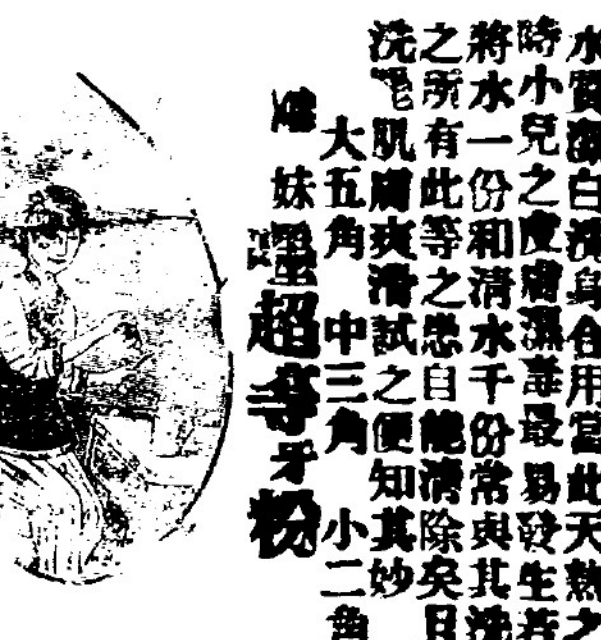 水質潔白洗身合用當此天熱之
時小兒之皮膚濕毒最易發生若
將水一份和清水千份常與其洗
之所有此等之患自能清除矣且
洗毛肌膚爽滑試之便知其妙
大五角 中三角 小二角
妹
超等牙粉